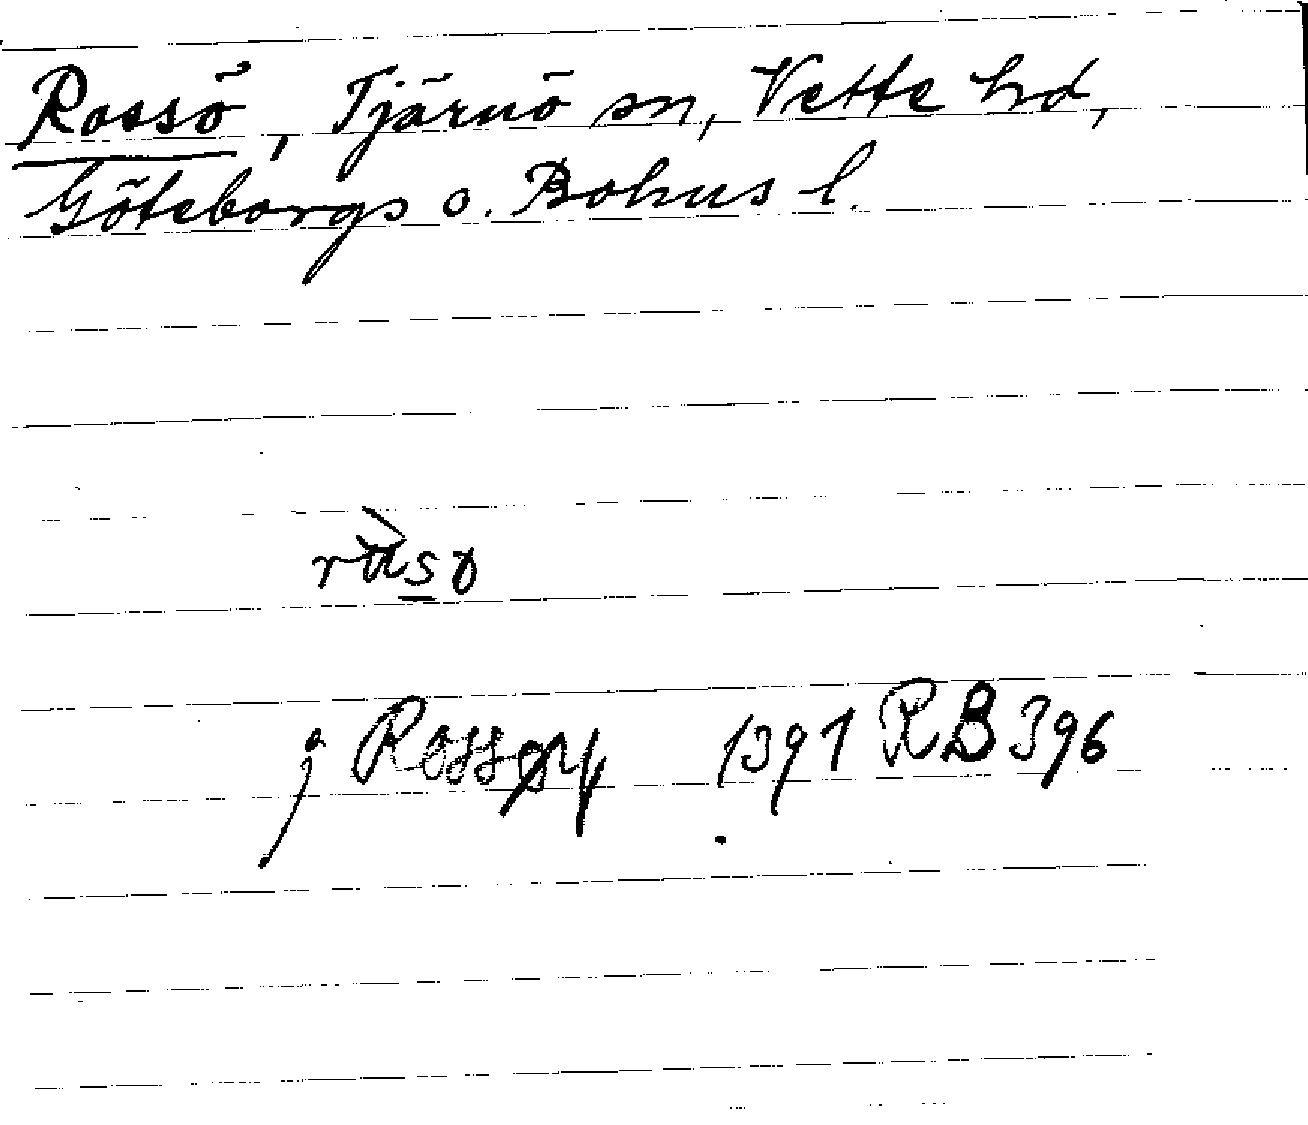 Rossö, Tjärnö sn, Vette hd,
Göteborgs o. Bohus l.
j Rossøy 1391 RB 396